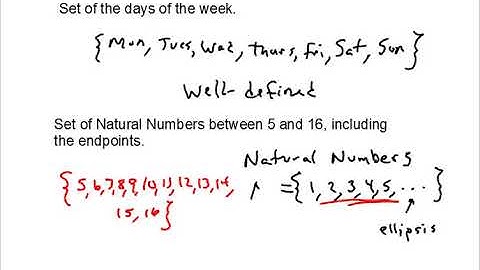 Set of the days of the week.
{Mon, Tues, Wed, Thurs, Fri, Sat, Sun}
Well-defined
Set of Natural Numbers between 5 and 16, including
the endpoints.
Natural Numbers
{5,6,7,8,9,10,11,12,13,14,
15,16}
= {1, 2, 3, 4, 5, ...}
ellipsis